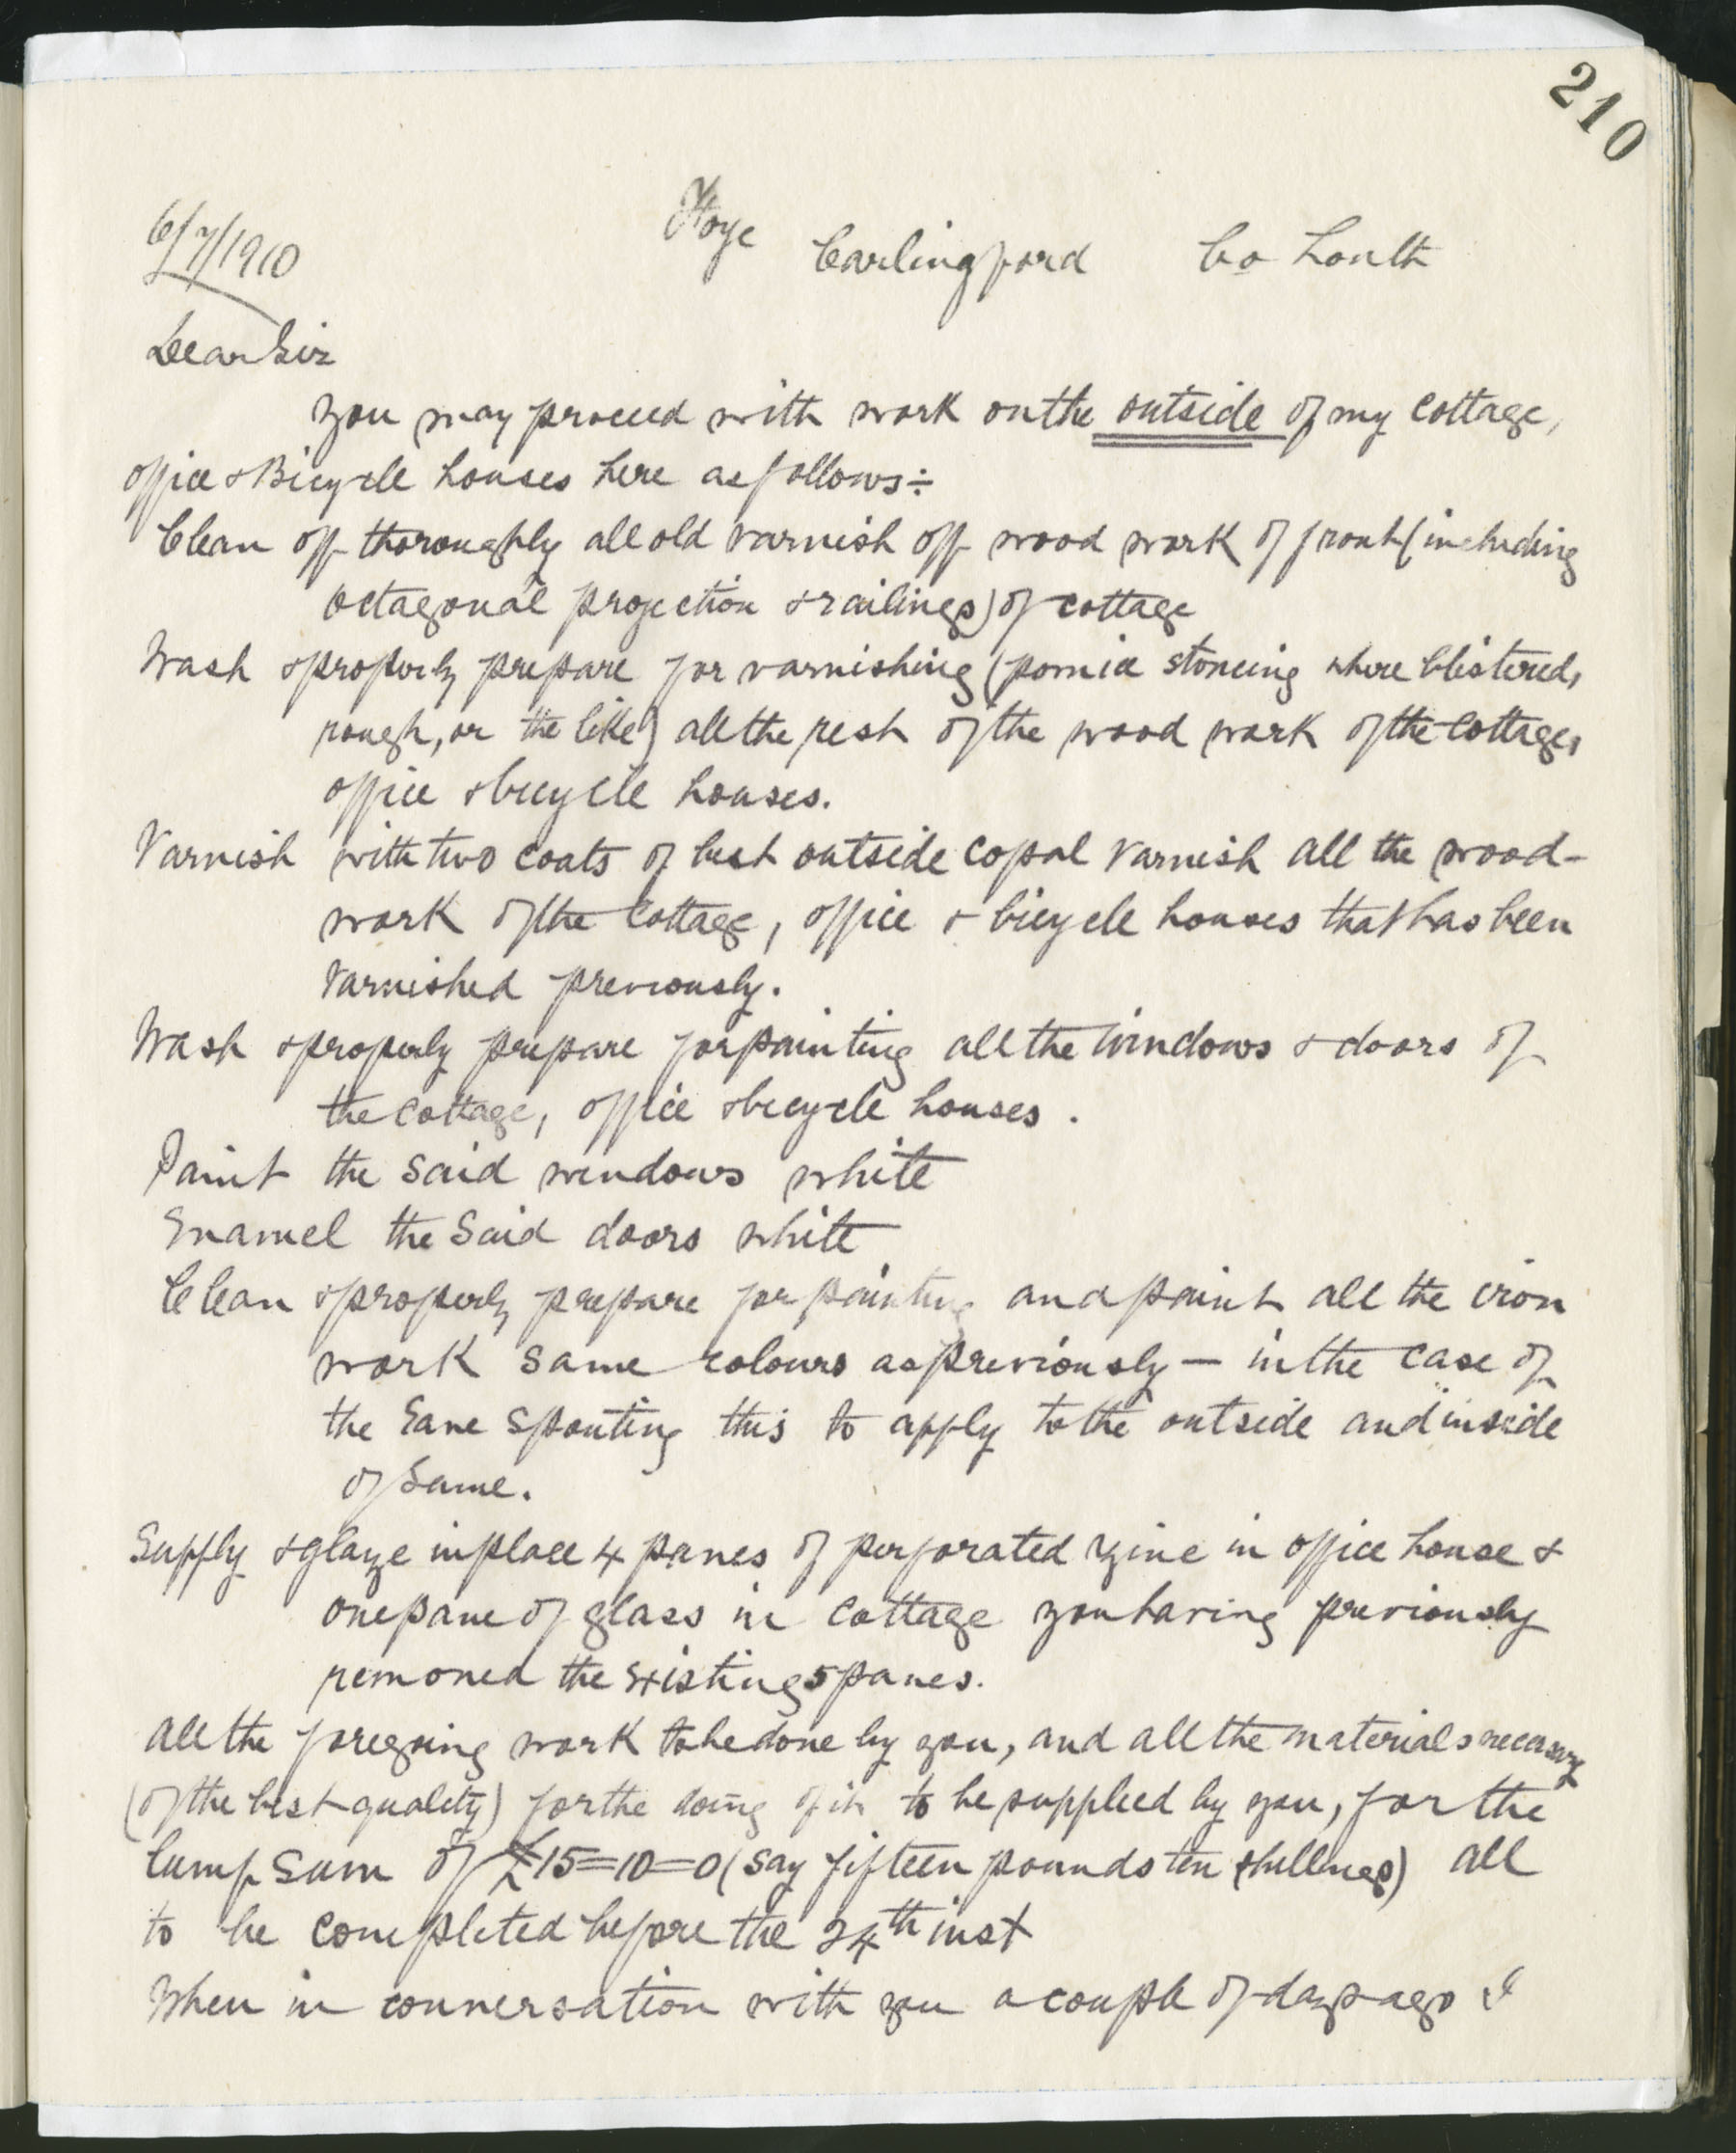 210
6/7/1910
Carlingford Co Louth
Dear Sir
You may proceed with work on the outside of my cottage,
office & Bicycle houses here as follows:-
Clean off thoroughly all old varnish off wood work of front (including
octagonal projection & railings) of cottage
Wash & properly prepare for varnishing (pomice stoneing where blistered,
rough, or the like) all the rest of the wood work of the cottage,
office & bicycle houses.
Varnish with two coats of best outside copal varnish all the wood-
work of the cottage, office & bicycle houses that has been
varnished previously.
Wash & properly prepare for painting all the windows & doors of
the cottage, office & bicycle houses.
Paint the said windows white
Enamel the said doors white
Clean & properly prepare for painting and paint all the iron
work same colours as previously – in the case of
the Eave Spouting this to apply to the outside and inside
of same.
Supply & glaze in place 4 panes of perforated zinc in office house &
one pane of glass in cottage you having previously
removed the existing 5 panes.
All the foregoing work to be done by you, and all the materials necessary
(of the best quality) for the doing of it to be supplied by you, for the
lump sum of £15=10=0 (say fifteen pounds ten shillings) all
to be completed before the 24th inst
When in conversation with you a couple of days ago I